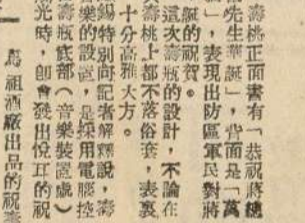 壽桃正面書有「恭祝蔣總
先生華誕」，背面是「萬
」，表現出防區軍民對將
誕的祝賀。
這次壽瓶的設計，不論在
壽桃上都不落俗套，表裏
十分高雅大方。
錫特別向記者解釋說，壽
樂的設置，是採用電腦控
壽瓶底部（音樂裝置處）
光時，即會發出悅耳的祝
祖酒廠出品的祝壽